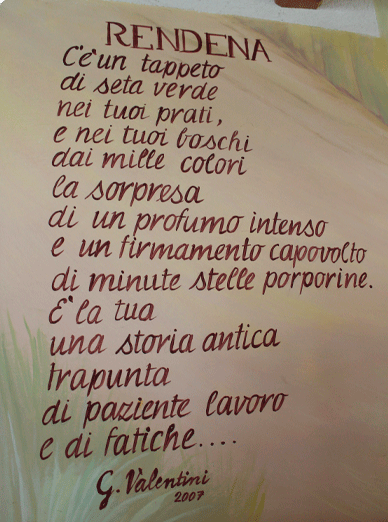 RENDENA
C'è un tappeto
di seta verde
nei tuoi prati,
e nei tuoi boschi
dai mille colori
la sorpresa
di un profumo intenso
e un firmamento capovolto
di minute stelle porporine.
E' la tua
una storia antica
trapunta
di paziente lavoro
e di fatiche....
G. Valentini
2007